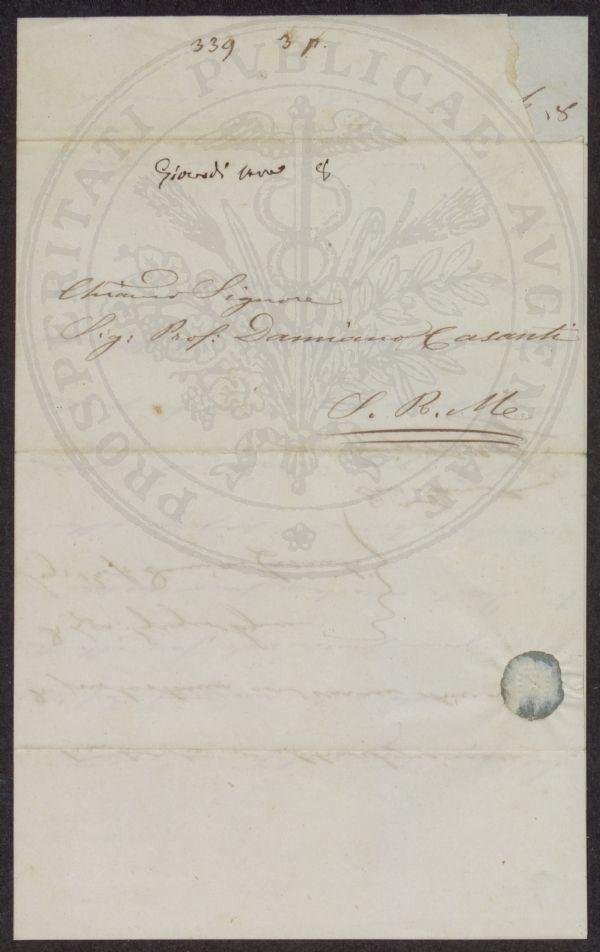 339 3 p.
18
Giovedi ore 8
Chiarmo Signore
Sig: Prof. Damiano Casanti
S. R. Me
PROSPERITATI PVBLICAE AVGENDAE